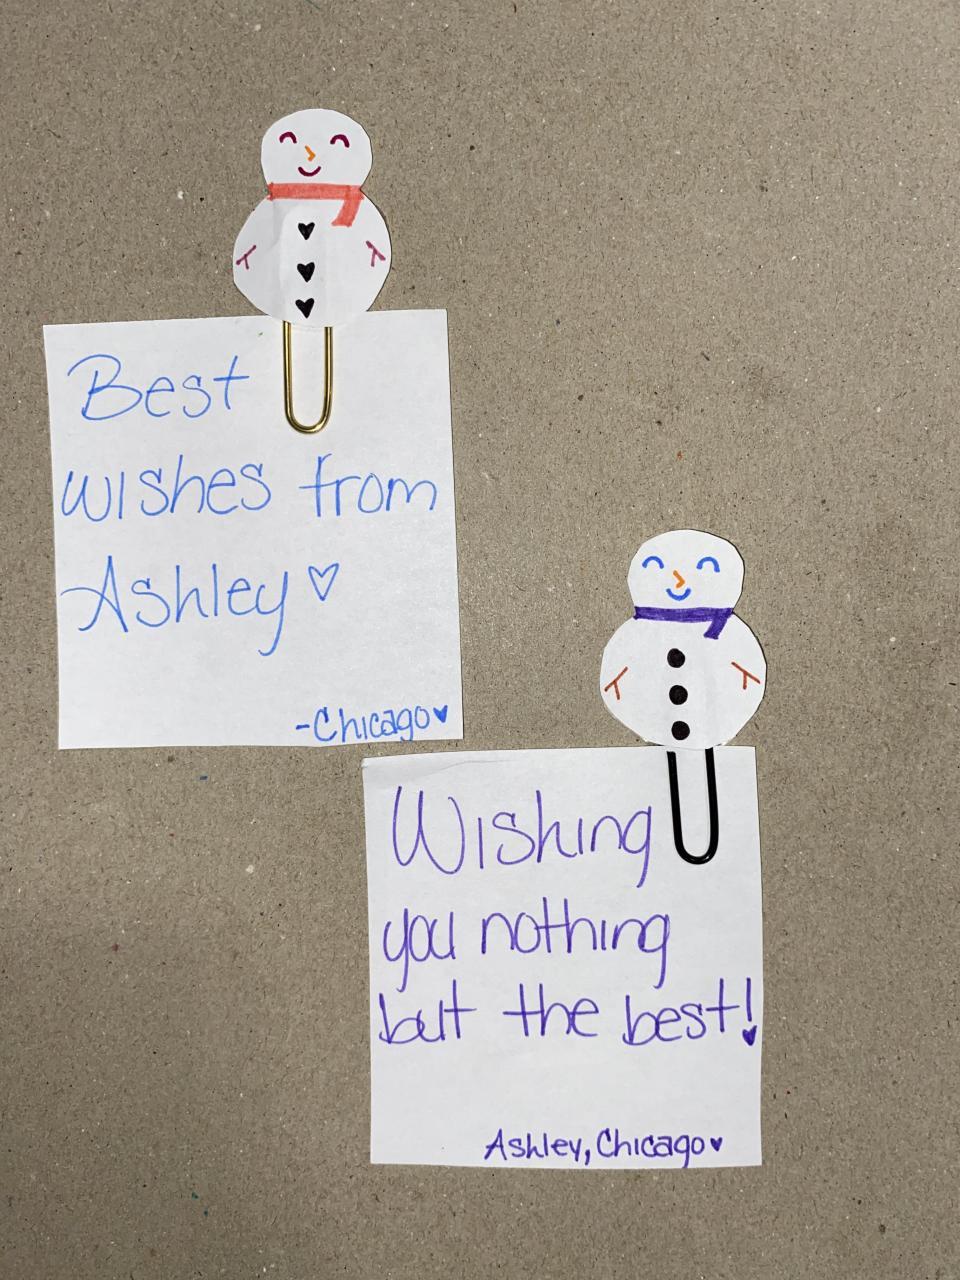 Best
wishes from
Ashley♡
-Chicago♥
Wishing
you nothing
but the best!
Ashley, Chicago♥